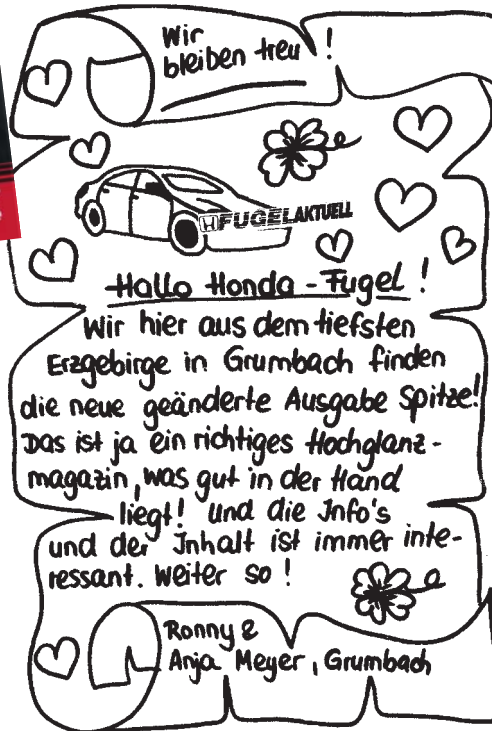 Wir
bleiben treu !
FUGEL AKTUELL
Hallo Honda - Fugel !
Wir hier aus dem tiefsten
Erzgebirge in Grumbach finden
die neue geänderte Ausgabe Spitze!
Das ist ja ein richtiges Hochglanz-
magazin, was gut in der Hand
liegt! Und die Info's
und der Inhalt ist immer inte-
ressant. Weiter so !
Ronny &
Anja Meyer, Grumbach